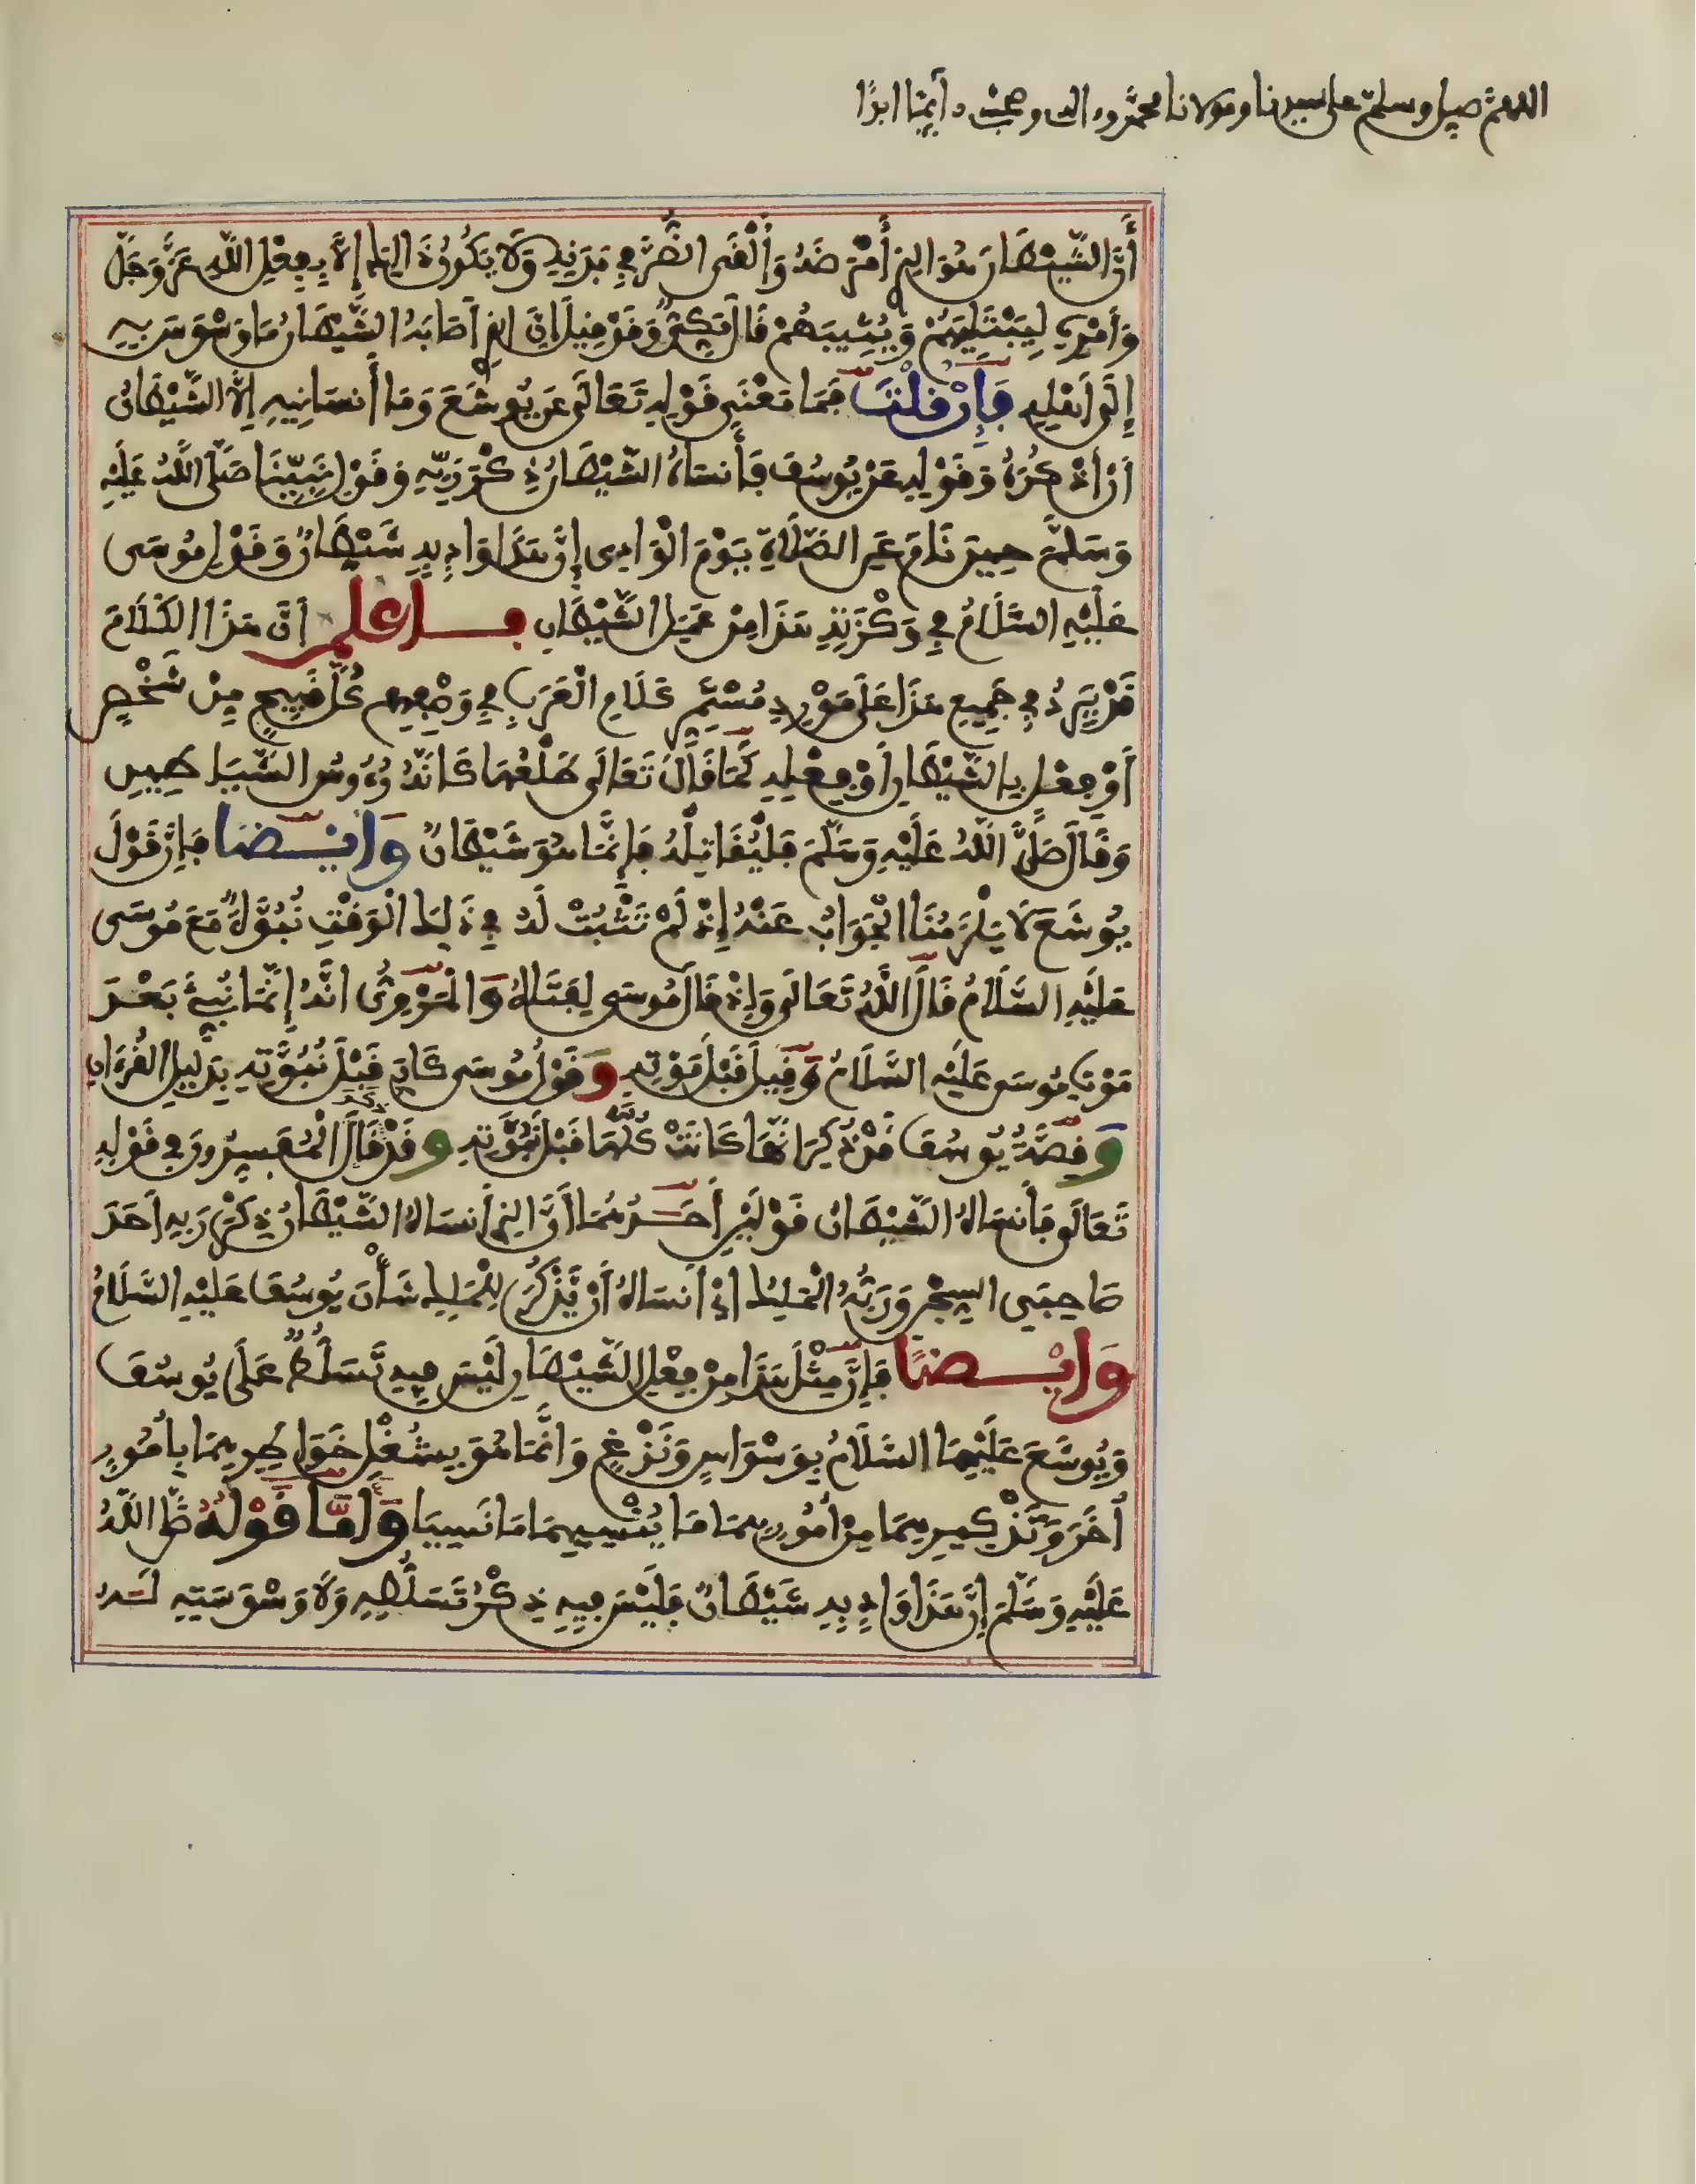 اللهم صل وسلم على سيدنا ومولانا محمد وءاله وصحبه دآئما ابدا
أَنَّ الشَّيْطَانَ هُوَ الذِي أَمْرَضَهُ وَأَلْقَى الضُّرَّ فِي بَدَنِهِ وَلَا يَكُونُ ذَالِكَ إِلَّا بِفِعْلِ اللَّهِ عَزَّ وَجَلَّ
وَأَمْرِهِ لِيَبْتَلِيَهُمْ وَيُثِيبَهُمْ قَالَ مَكِّيٌّ وَقَدْ قِيلَ إِنَّ الذِي أَصَابَهُ الشَّيْطَانُ مَا وَسْوَسَ بِهِ
إِلَى أَهْلِهِ فَإِنْ قُلْتَ فَمَا مَعْنَى قَوْلِهِ تَعَالَى عَن يُوشَعَ وَمَا أَنسَانِيهِ إِلَّا الشَّيْطَانُ
أَنْ أَذْكُرَهُ وَقَوْلِهِ عَنْ يُوسُفَ فَأَنسَاهُ الشَّيْطَانُ ذِكْرَ رَبِّهِ وَقَوْلِ نَبِيِّنَا صَلَّى اللَّهُ عَلَيْهِ
وَسَلَّمَ حِينَ نَامَ عَنِ الصَّلَاةِ يَوْمَ الْوَادِي إِنَّ هَذَا وَادٍ بِهِ شَيْطَانٌ وَقَوْلِ مُوسَى
عَلَيْهِ السَّلَامُ فِي وَكْزَتِهِ هَذَا مِنْ عَمَلِ الشَّيْطَانِ فاعلم أَنَّ هَذَا الْكَلَامَ
قَدْ يَرِدُ فِي جَمِيعِ هَذَا عَلَى مَوْرِدِ مُسْتَمِرِّ كَلَامِ الْعَرَبِ فِي وَصْفِهِم كُلَّ قَبِيحٍ مِنْ شَخْصٍ
أَوْ فِعْلٍ بِالشَّيْطَانِ أَوْ فِعْلِهِ كَمَا قَالَ تَعَالَى طَلْعُهَا كَأَنَّهُ رُءُوسُ الشَّيَاطِينِ
وَقَالَ صَلَّى اللَّهُ عَلَيْهِ وَسَلَّمَ فَلْيُقَاتِلْهُ فَإِنَّمَا هُوَ شَيْطَانٌ وَايْضا فَإِنَّ قَوْلَ
يُوشَعَ لَا يَلْزَمُنَا الْجَوَابُ عَنْهُ إِذْ لَمْ تَثْبُتْ لَهُ فِي ذَلِكَ الْوَقْتِ نُبُوَّةٌ مَعَ مُوسَى
عَلَيْهِ السَّلَامُ قَالَ اللَّهُ تَعَالَى وَإِذْ قَالَ مُوسَى لِفَتَاهُ وَالْمَرْوِيُّ انَّهُ إِنَّمَا نُبِّئَ بَعْدَ
مَوْتِ مُوسَى عَلَيْهِ السَّلَامُ وَقِيلَ قَبْلَ مَوْتِهِ وَقَوْلُ مُوسَى كَانَ قَبْلَ نُبُوَّتِهِ بِدَلِيلِ الْقُرْءَانِ
وَقِصَّةُ يُوسُفَ قَدْ ذُكِرَ انَّهَا كَانَتْ كُلُّهَا قَبْلَ نُبُوَّتِهِ وَقَدْ قَالَ الْمُفَسِّرُونَ فِي قَوْلِهِ
تَعَالَى فَأَنسَاهُ الشَّيْطَانُ قَوْلَيْنِ أَحَدُهُمَا أَنَّ الذِي أَنسَاهُ الشَّيْطَانُ ذِكْرَ رَبِهِ أَحَدَ
صَاحِبَيِ السِجْنِ وَرَبُّهُ الْمَلِكُ ايْ أَنسَاهُ أَنْ يَّذْكُرَ لِلْمَلِكِ شَأْنَ يُوسُفَ عَلَيْهِ السَّلَامُ
وَايْضًا فَإِنَّ مِثْلَ هَذَا مِنْ فِعْلِ الشَّيْطَانِ لَيْسَ فِيهِ تَسَلُّطٌ عَلَى يُوسُفَ
وَيُوشَعَ عَلَيْهِمَا السَّلَامُ بِوَسْوَاسٍ وَنَزْغٍ وَانَّمَا هُوَ بِشُغْلِ خَوَاطِرِهِمَا بِأُمُورٍ
أُخَرَ وَتَذْكِيرِهِمَا مِنْ أُمُورِهِمَا مَا يُنْسِيهِمَا مَا نَسِيَا وَأَمَّا قَوْلُهُ صَلَّى اللَّهُ
عَلَيْهِ وَسَلَّمَ إِنَّ هَذَا وَادٍ بِهِ شَيْطَانٌ فَلَيْسَ فِيهِ ذِكْرُ تَسَلُّطِهِ وَلَا وَسْوَسَتِهِ لَهُ